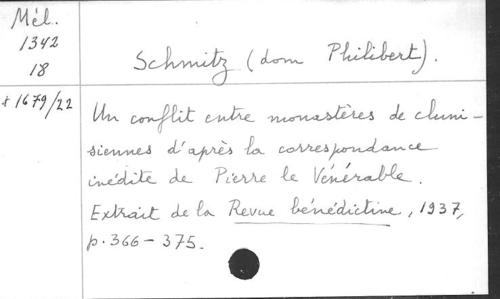 Mél.
1342
18
Schmitz (dom Philibert).
+ 1679/22
Un conflit entre monastères de cluni-
siennes d'après la correspondance
inédite de Pierre le Vénérable.
Extrait de la Revue bénédictine, 1937,
p. 366 – 375.